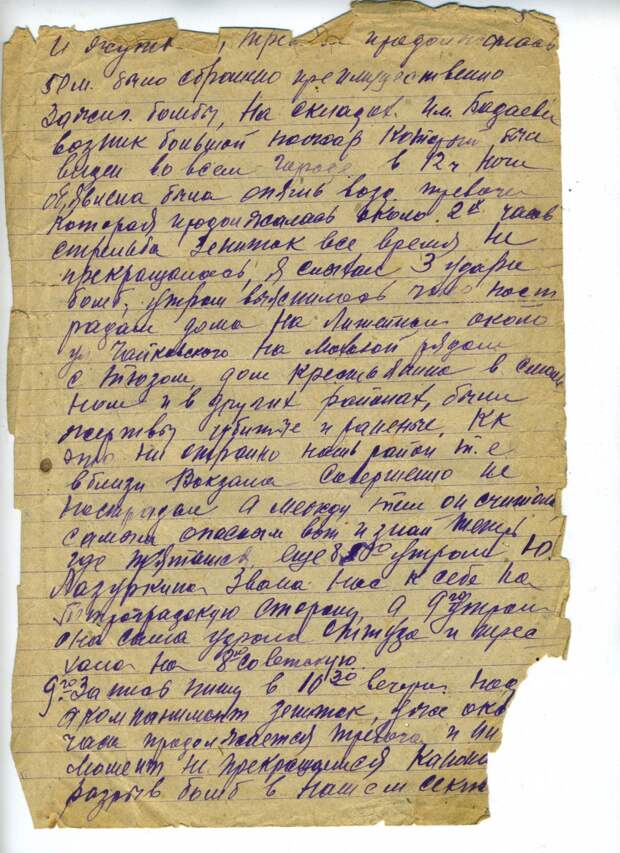 и жутк , тре продолжалась
50 м. было сброшено преимущественно
Зажиг. бомбы, на складах. Им. Бадаева
возник большой пожар который был
виден во всем городе в 12 ч ночи
об'явлена была опять возд тревога
которая продолжалась около 2х часов
стрельба зениток все время не
прекращалась, я слышал 3 удара
бомб, утром выяснилось что пост
радали дома на Литейном около
ул Чайковского на Моховой рядом
с Тюзом, дом крестьянина в
ном и в других районах, были
жертвы убитые и раненые. Кк
это ни странно наш район т. е
вблизи Вокзала совершенно не
пострадал а между тем он считался
самым опасным вот и знай теперь
где прятаться еще 8 00 утром Ю.
Лазуркина звала нас к себе на
Петроградскую сторону, а 9го утром
она сама удрала оттуда и прие
хала на 8ю Советскую.
9го Запись пишу в 10 30 вечера под
акомпанимент зениток, уже око
часа продолжается тревога и ни
момент не прекращалися
разрыв бомб в нашем сект